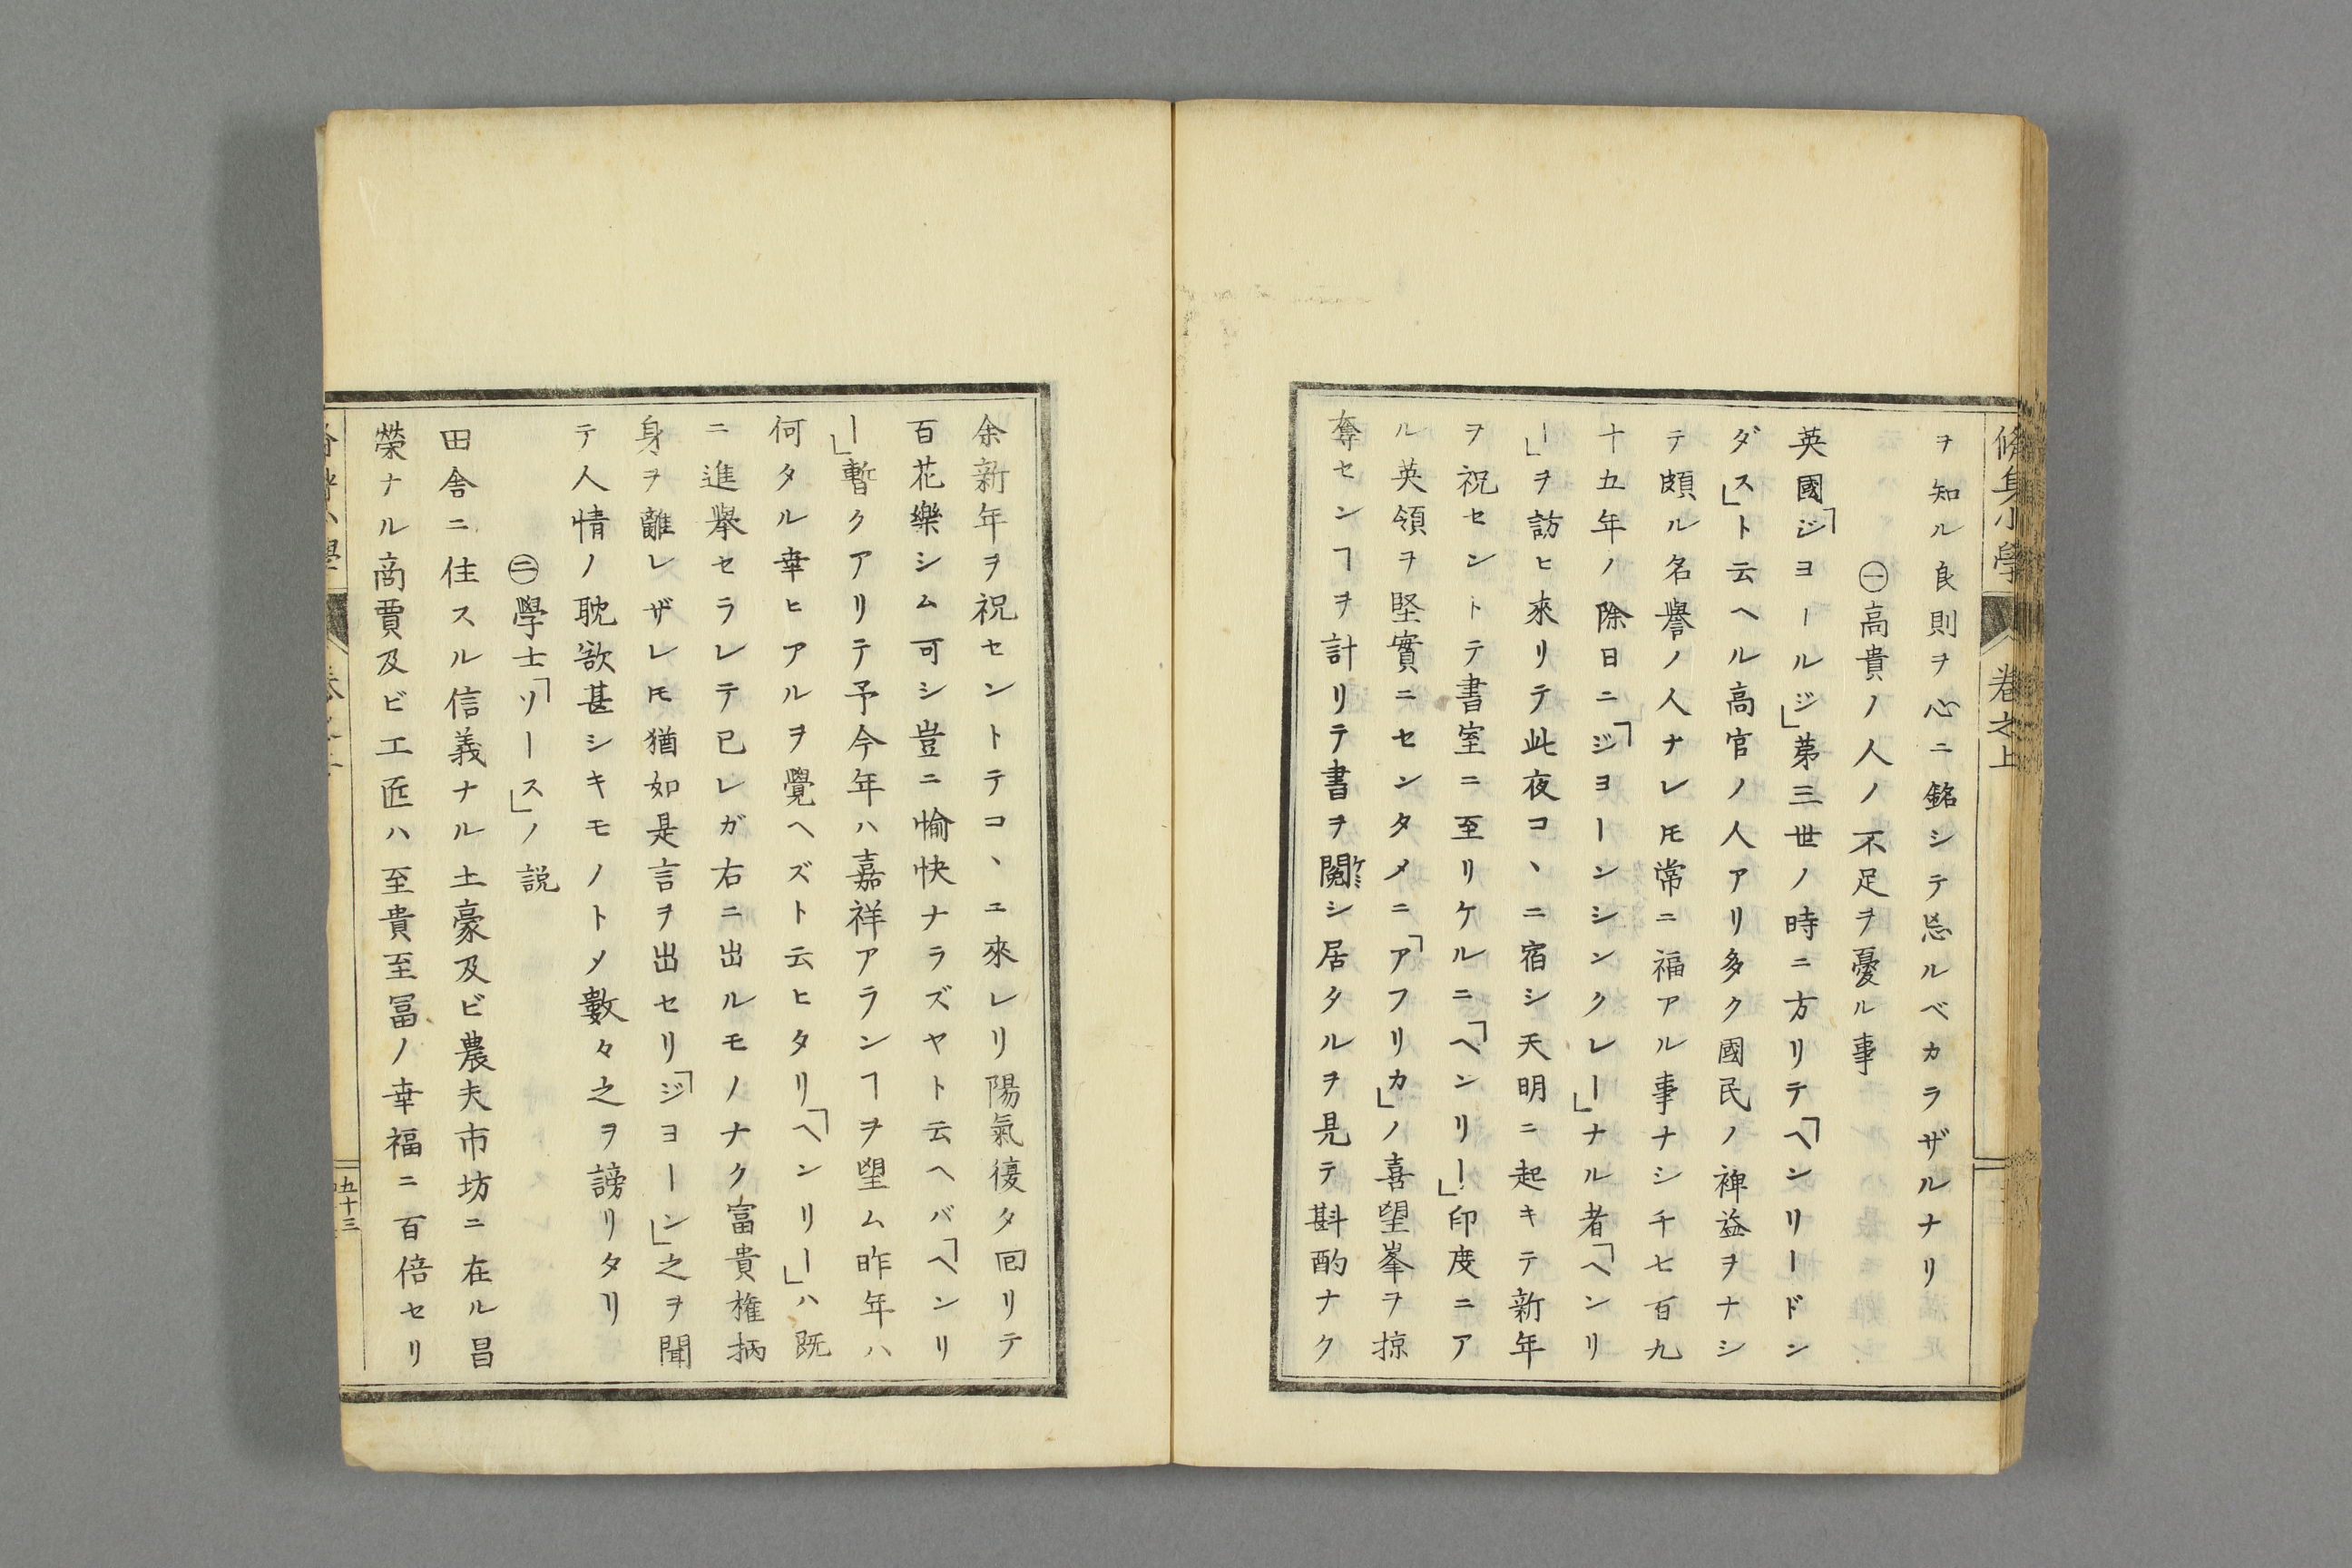 脩身小學 卷之上
ヲ知ル良則ヲ心ニ銘シテ忌ルベカラザルナリ
㊀高貴ノ人ノ不足ヲ憂ル事
英國「ジヨールジ」苐三世ノ時ニ方リテ「ヘンリードン
ダス」ト云ヘル高官ノ人アリ多ク國民ノ裨益ヲナシ
テ頗ル名譽ノ人ナレ𪜈常ニ福アル事ナシ千七百九
十五年ノ除日ニ「ジヨーンシンクレー」ナル者「ヘンリ
ー」ヲ訪ヒ來リテ此夜コヽニ宿シ天明ニ起キテ新年
ヲ祝セントテ書室ニ至リケルニ「ヘンリー」印度ニア
ル英領ヲ堅實ニセンタメニ「アフリカ」ノ喜望峯ヲ掠
奪センヿヲ計リテ書ヲ閲ケミシ居タルヲ見テ斟酌ナク
余新年ヲ祝セントテコヽヱ來レリ陽氣復タ回リテ
百花樂シム可シ豈ニ愉快ナラズヤト云ヘバ「ヘンリ
ー」暫クアリテ予今年ハ嘉祥アランヿヲ望ム昨年ハ
何タル幸ヒアルヲ覺ヘズト云ヒタリ「ヘンリー」ハ既
ニ進擧セラレテ已レガ右ニ出ルモノナク富貴権柄
身ヲ離レザレ𪜈猶如是言ヲ出セリ「ジヨーン」之ヲ聞
テ人情ノ耽欲甚シキモノトメ數々之ヲ謗リタリ
㊁學士「リース」ノ説
田舎ニ住スル信義ナル土豪及ビ農夫市坊ニ在ル昌
榮ナル商賈及ビ工匠ハ至貴至冨ノ幸福ニ百倍セリ
五十三